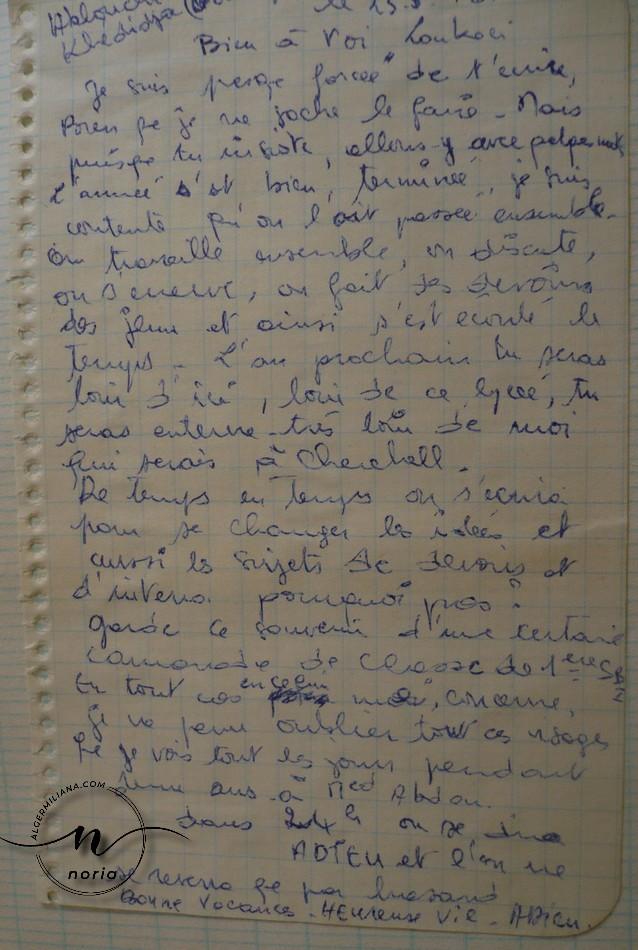 Khedidja
Bien à toi Loukaci
Je suis presque forcée de t'écrire,
Bien que je ne sache le faire - Mais
puisque tu insiste, allons-y avec quelques mots
L'année s'est bien terminée, je suis
contente qu'on l'ait passée ensemble.
On travaille ensemble, on discute,
on s'énerve, on fait des devoirs
des jeux et ainsi s'est écoulé le
temps - L'an prochain tu seras
loin d'ici, loin de ce lycée, tu
seras interne très loin de moi
qui serais à Cherchell.
De temps en temps on s'écrira
pour se changer les idées et
aussi les sujets de devoirs et
d'interro. pourquoi pas?
Garde ce souvenir d'une certaine
camarade de classe de 1ere
En tout cas en ce qui me concerne,
je ne peux oublier tout ces visages
que je vois tout les jours pendant
ans à Med Abdou.
Dans 24h on se dira
ADIEU et l'on ne
se reverra que par hasard
Bonne Vacances - Heureuse Vie - ADieu.
ALGERMILIANA.COM
n
noria